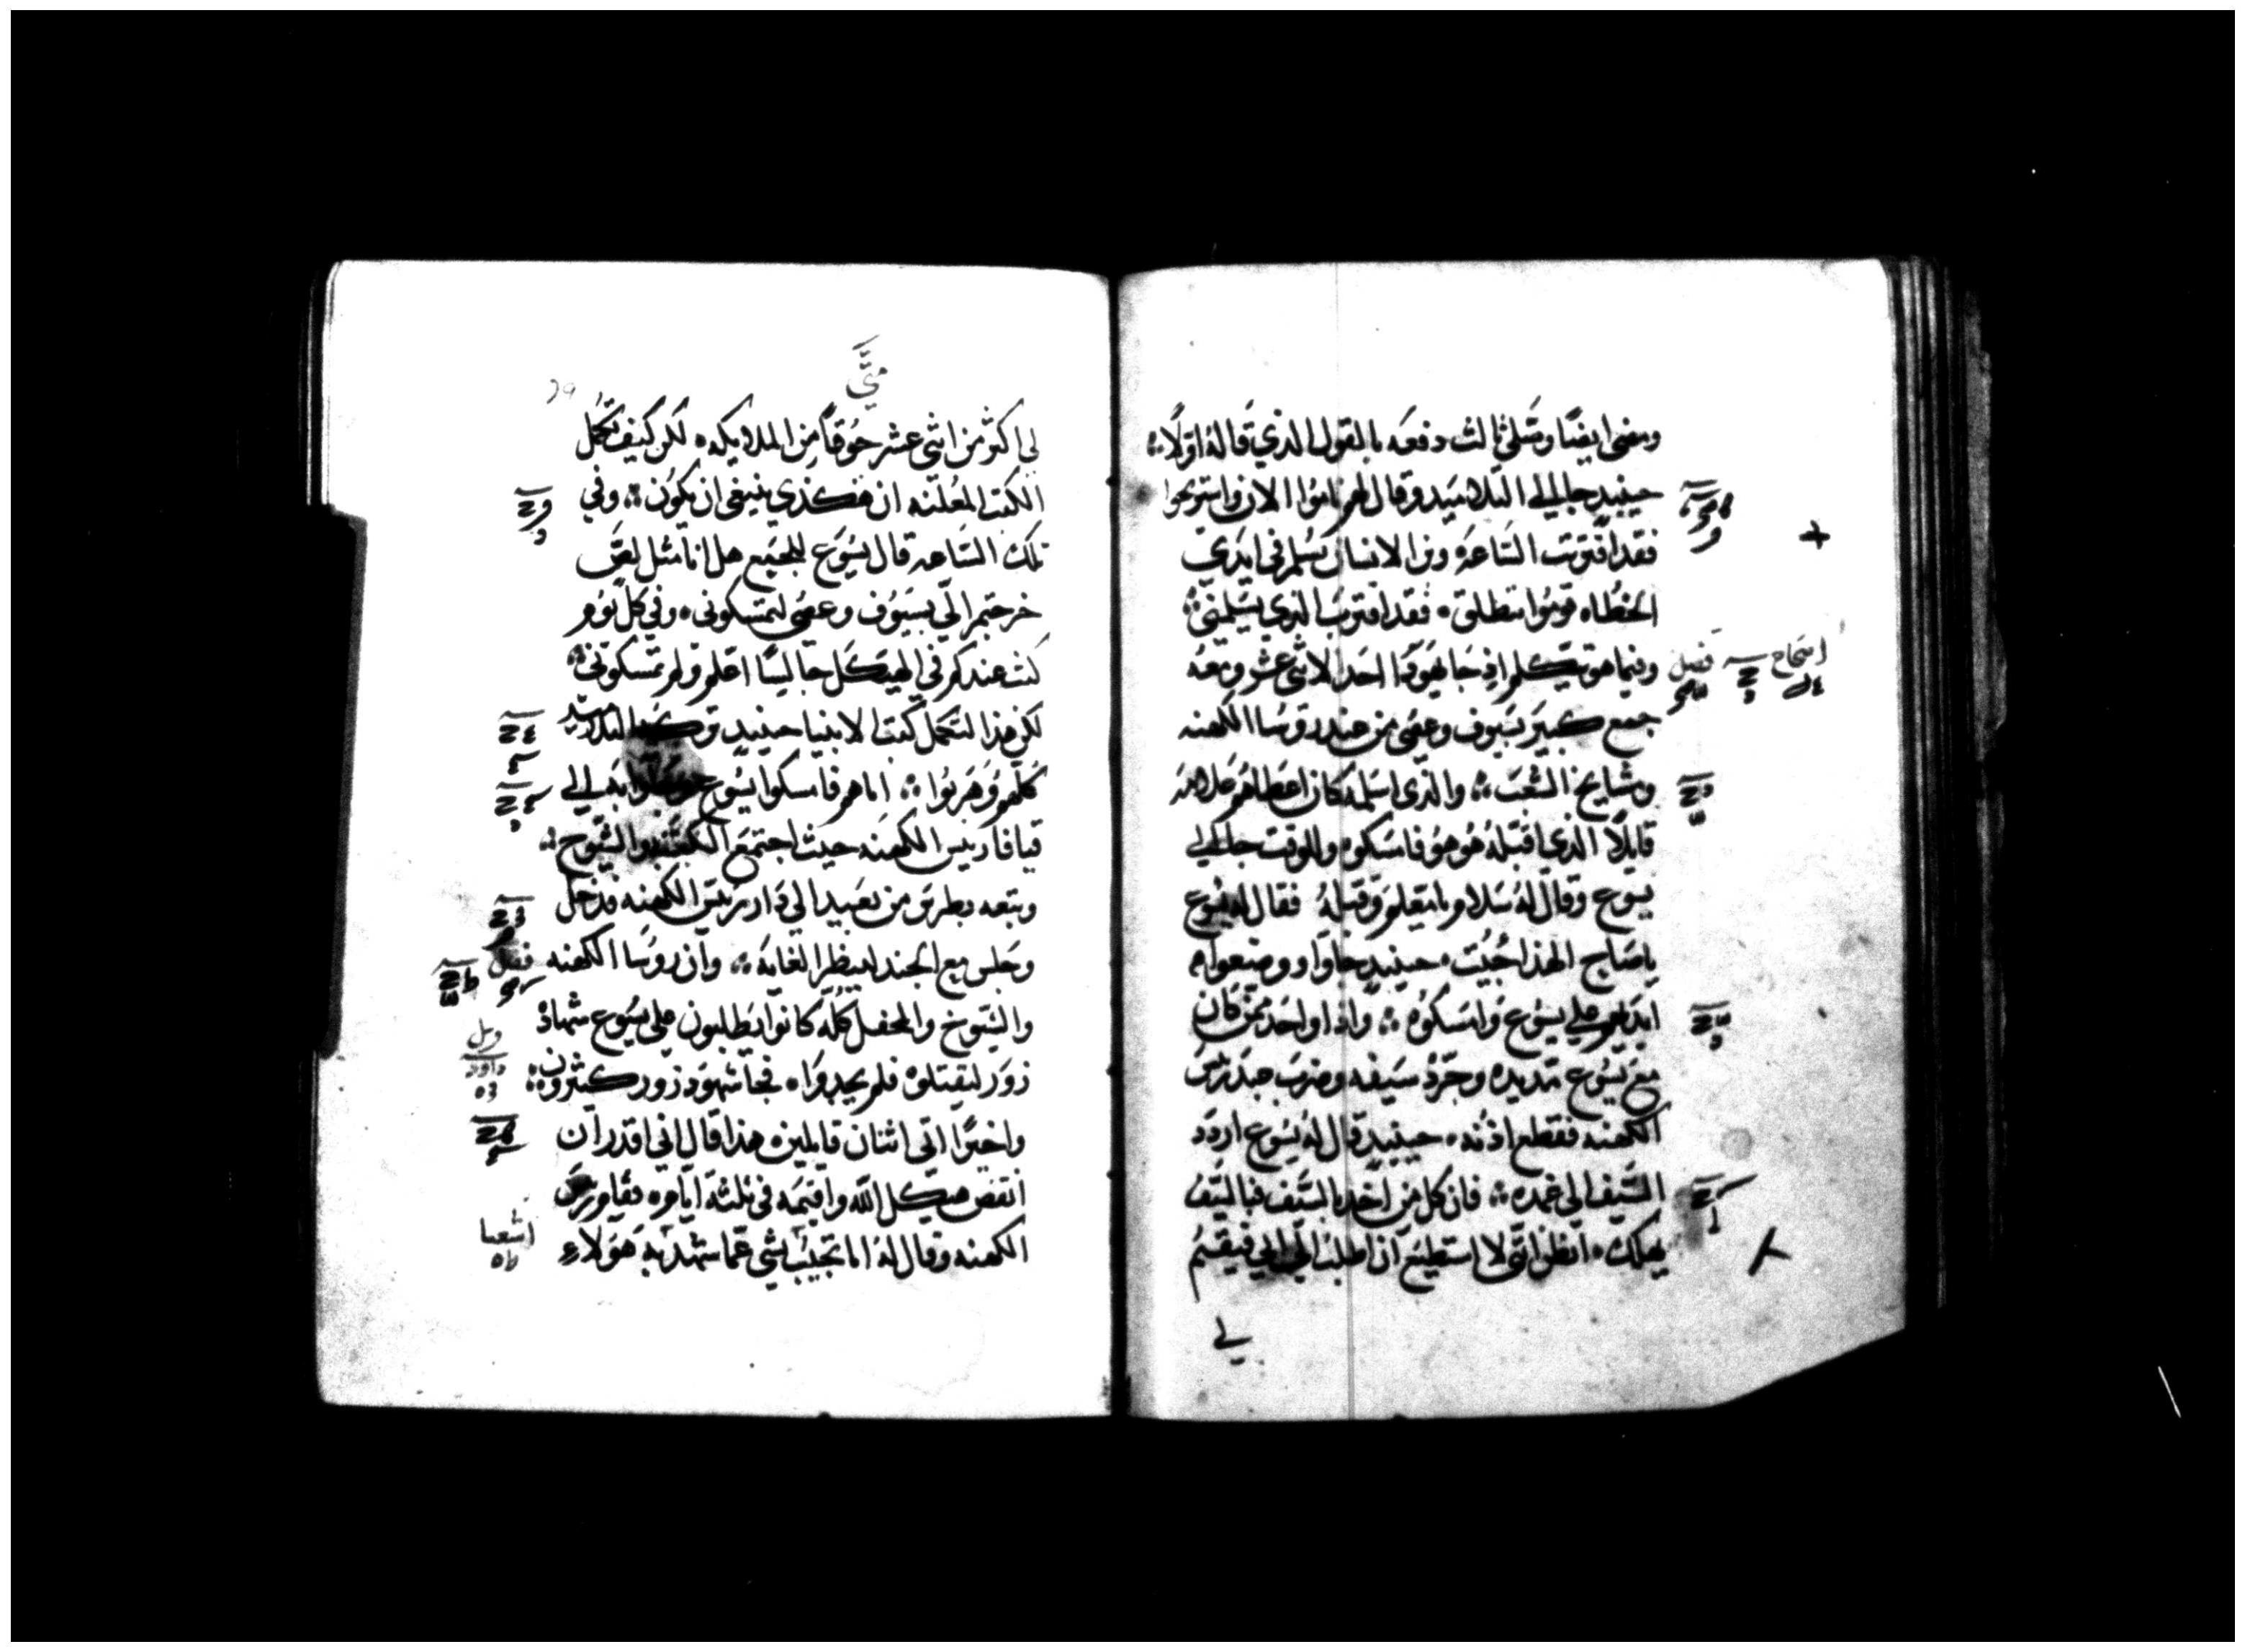 ومضى ايضًا وصَلّى ثالث دفعَه بالقول الذي قاله اوّلًا
حينيدٍ جا الى التلاميَيد وقال لهم ناموا الان واستريحوا
فقد اقتربت السَاعَه وبن الانسان يُسلم في ايدي
الخطُاه قومُوا ننطلق فقد اقترب الذي يسَلمني
وفيما هو يتكلم اذ جا يَهودَا احَد الاثنى عشر ومَعَه
اصحاح فصل
جمع كبير بسَيوف وعصى من عند روسَا الكهنه
ومشايخ الشعَب والذى اسلمه كان اعطاهم علامَه
قايلًا الذى اقبّله هُو هوُ فامسَكوه وللوقت جا الى
يسوع وقال لهُ سَلام يا معَلم وقبّله فقال له يسُوع
يا صَاحِ الهذا جُيت حينيدٍ جاوا ووضعوا
ايديهم على يسُوع وامسَكوُه واذا واحَد ممن كان
معَ يسُوع مدّ يده وجَرّدَ سَيفه وضربَ عبد ريَس
الكهنه فقطع اذنه حينيدٍ قال لهُ يسُوع اردُد
السَيف الى غمده فان كل من اخد بالسَيف فبالسَيف
يهلك اتظن انّي لا استطيعَ ان اطلبَ الى ابي فيقيمُ
لي
متَّى
لي اكثر من اثنى عشر جَوقًا مِن الملايكه لكن كيفَ تكملُ
الكتب المعُلنه ان هكذي ينبغى ان يكوُن وفي
تلك السَاعه قال يسُوَع للجَميع هل انا مثل لصَّ
خرجتم الىّ بسَيَوُف وعصُي لتمسَكوني وفي كل يَوم
كنت عندكم في الهيكَل جَالسًا اعَلم ولم تمسكوني
لكن هذا لتكمل كتب الانبيا حينيدٍ تركه التلاميد
كلّهم وُهَربُوا اما هم فامسكوا يسُوع به الى
قيافا رييس الكهنَه حيث اجتمعَ الكتبه والشيُوخ
وتبعه بطرس من بَعَيد الى دَار رئيس الكهنه فدخل
وجَلسَ مع الجند لينظر الغايَه وان روسَا الكهنه فصل
والشيَوخ والمحفل كلّه كانوا يَطلبون على يسُوع شهادَة
زوَر ليقتلوه فلم يجدوَا فجا شهوَد زور كثيرون
مزمور داود
واخيرًا اتى اثنان قايلين هذا قال انى اقدر ان
انقض هيكل الله واقيَمه في ثلثة ايّام فقام ريَس
الكهنه وقال لهُ اما تجيَبُ بشي عمّا شهدَ به هَوَلاءِ
اشعيا